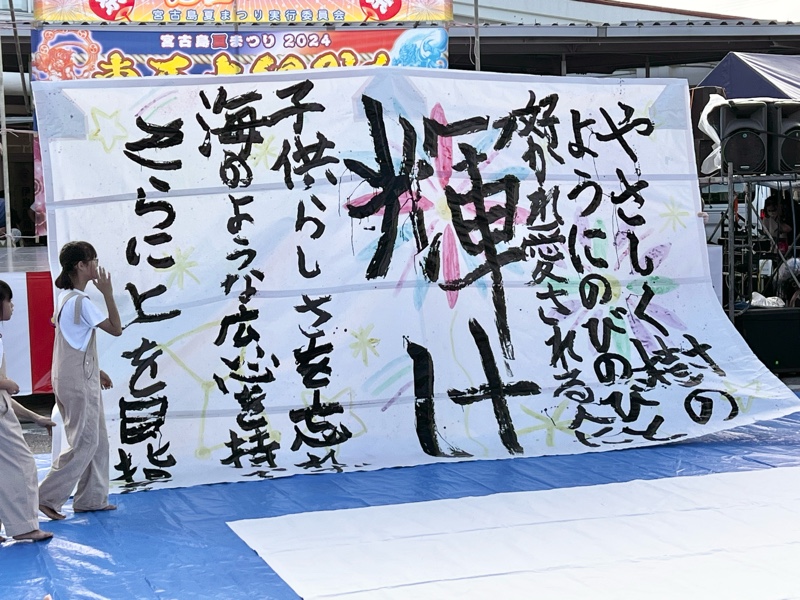 祭
祭
宮古島夏まつり実行委員会
宮古島夏まつり 2024
やさしく樹の
ようにのびのびと
かれ愛される人に
輝け
子供らしさを忘れ
海のような広い心を持
さらに上を目指